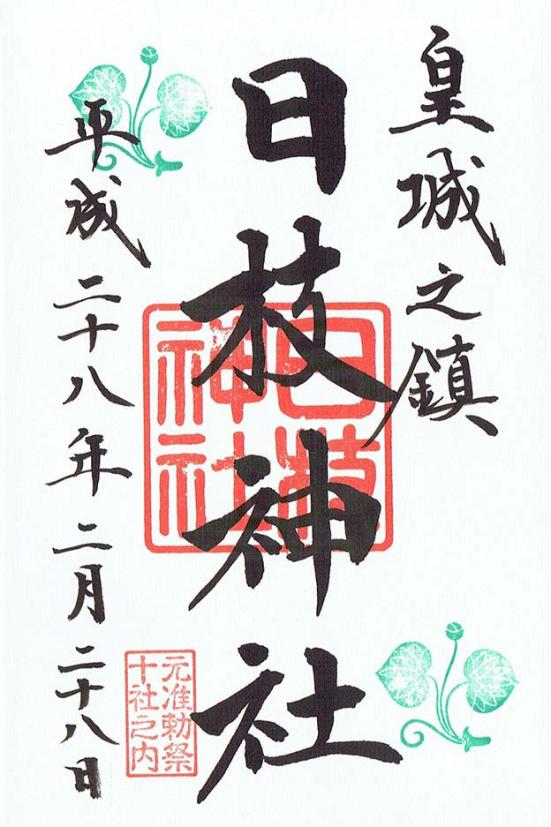 皇城之鎮
日枝神社
日枝
神社
平成二十八年二月二十八日
元准勅祭
十社之内